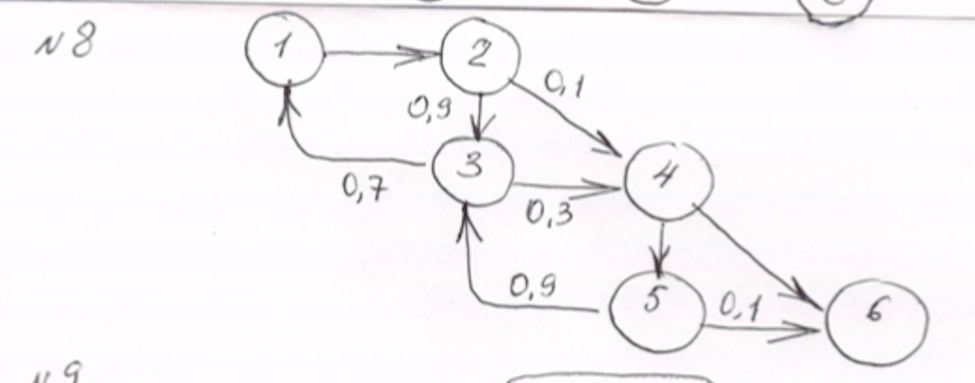 N8
1
2
0,1
0,9
3
4
0,7
0,3
0,9
5
0,1
6
N9